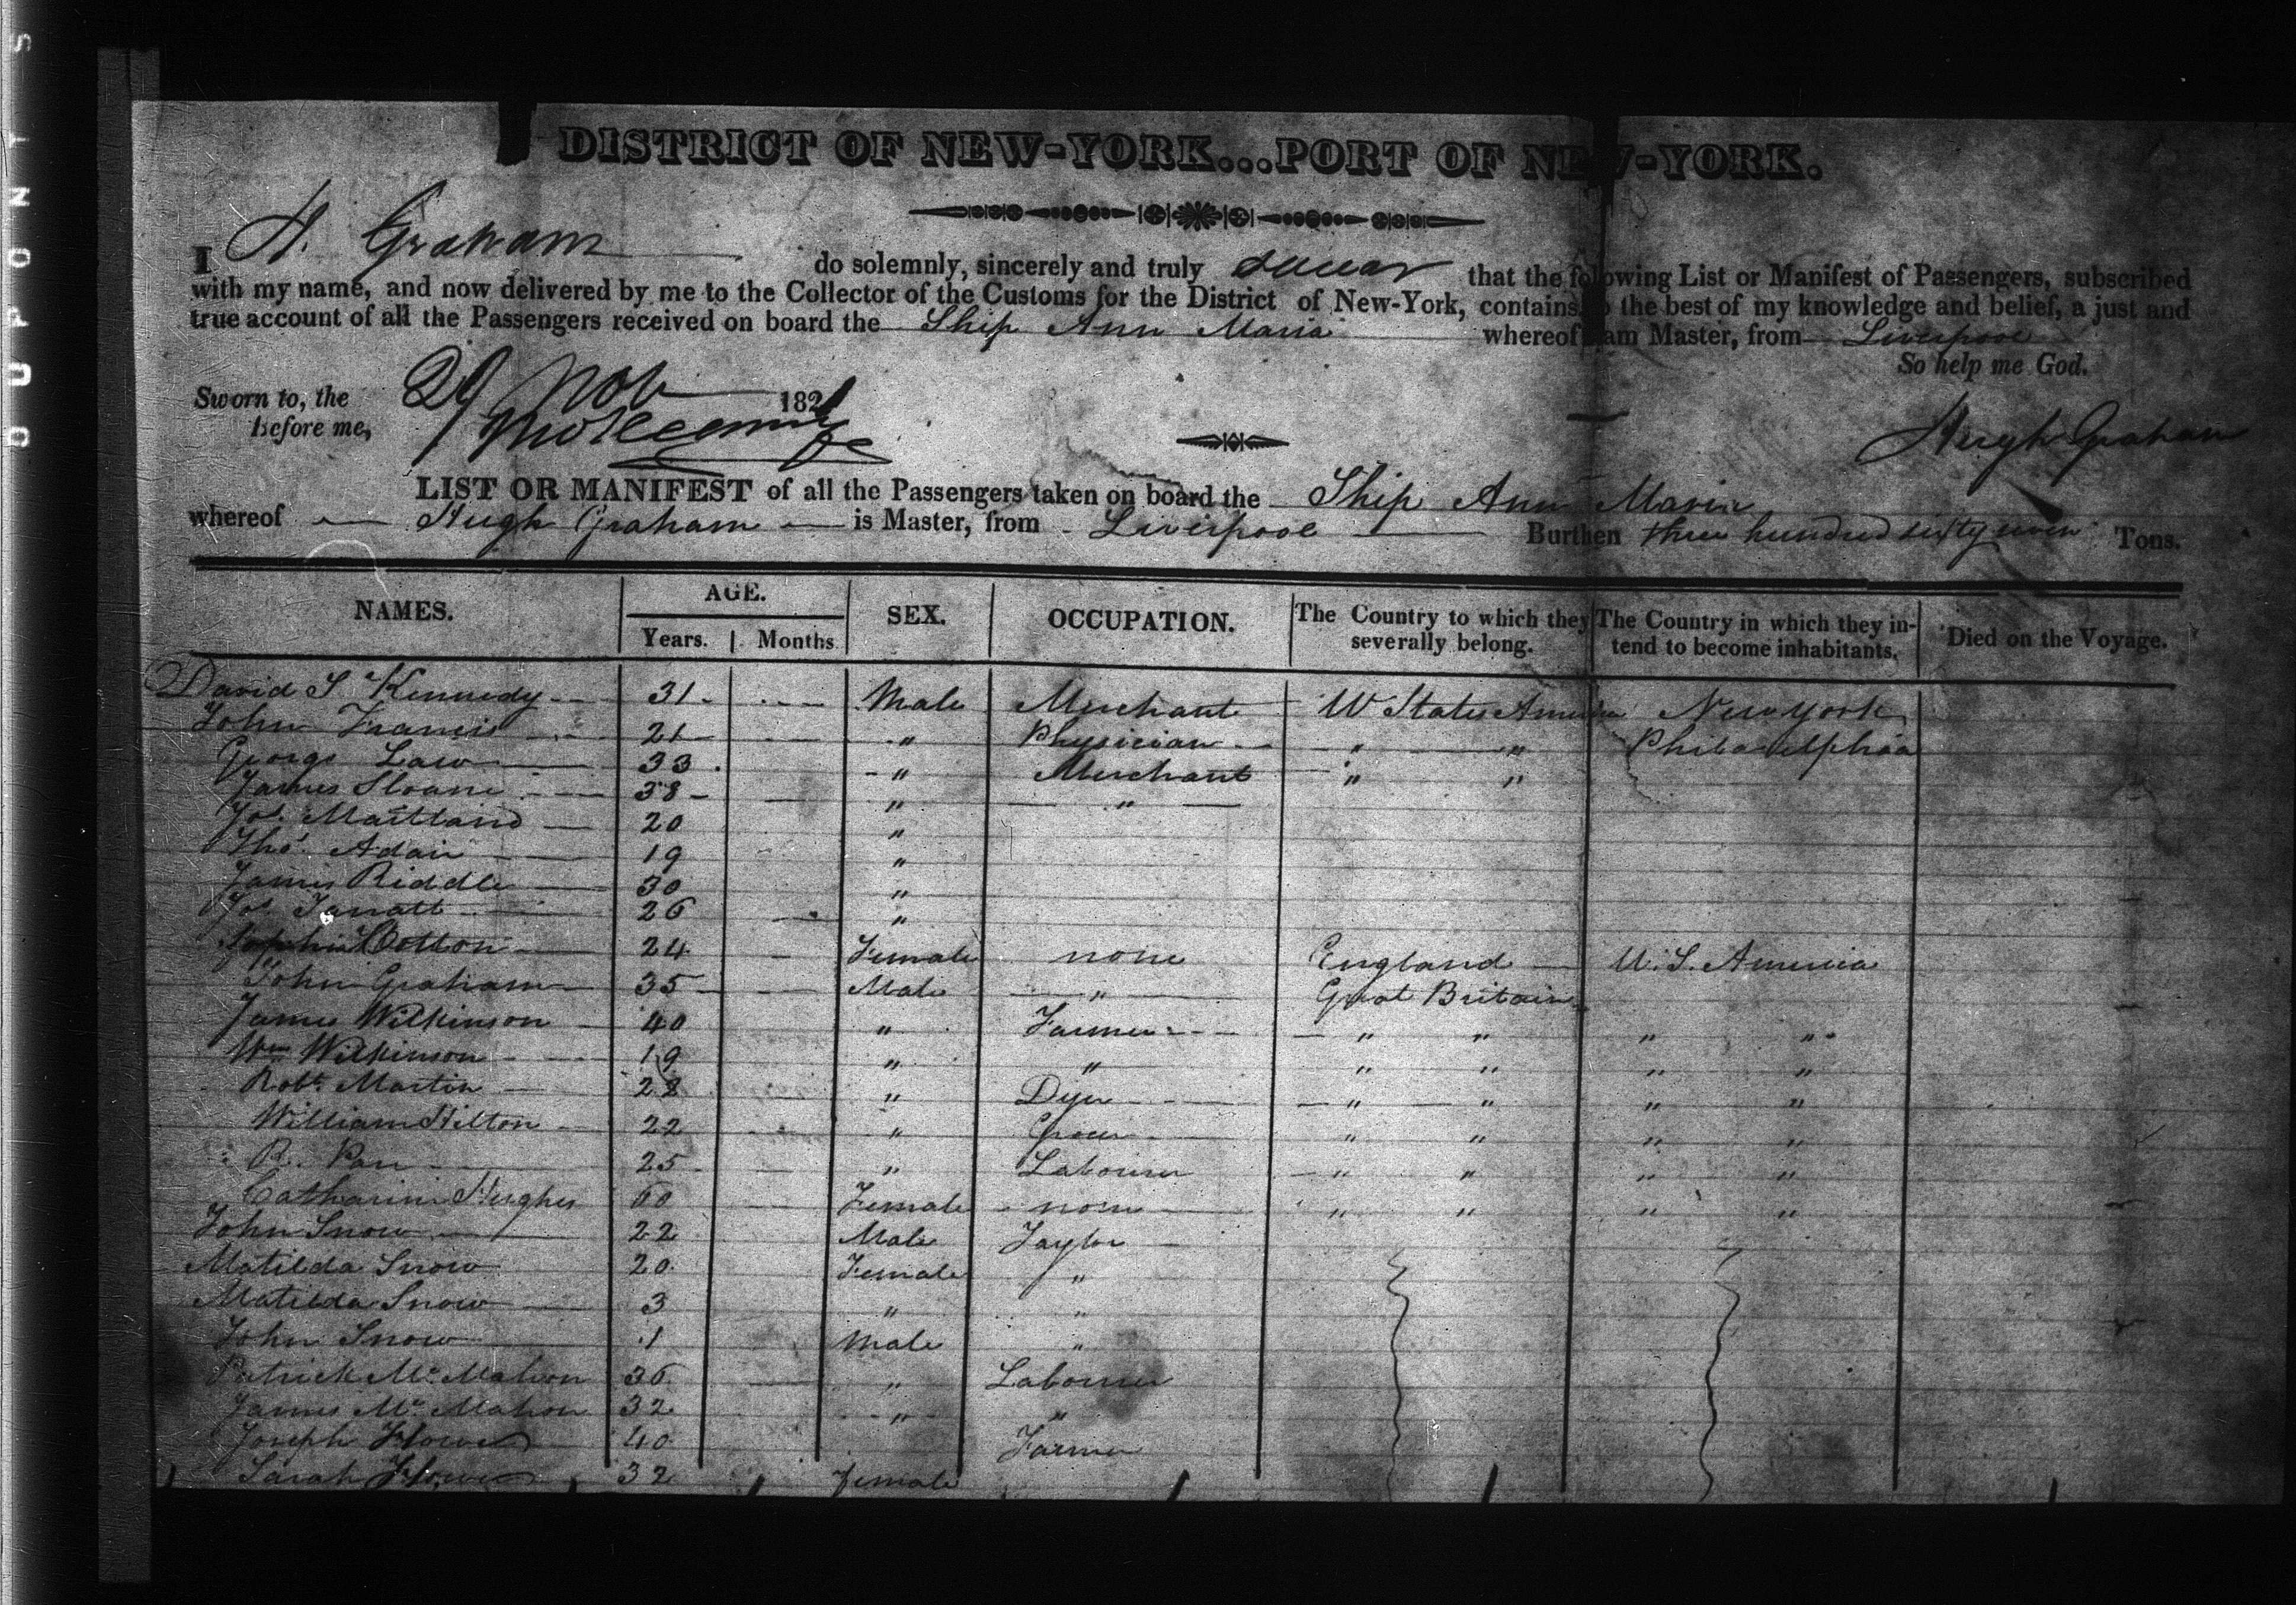 DUPONT S
DISTRICT OF NEW-YORK...PORT OF NEW-YORK.
I H. Graham do solemnly, sincerely and truly swear that the following List or Manifest of Passengers, subscribed
with my name, and now delivered by me to the Collector of the Customs for the District of New-York, contains, to the best of my knowledge and belief, a just and
true account of all the Passengers received on board the Ship Ann Maria whereof I am Master, from Liverpool
So help me God.
Sworn to, the 29 Nov 1821
Before me,
Hugh Graham
LIST OR MANIFEST of all the Passengers taken on board the Ship Ann Maria
whereof Hugh Graham is Master, from Liverpool Burthen three hundred sixty seven Tons.
NAMES. AGE. Years. Months. SEX. OCCUPATION. The Country to which they severally belong. The Country in which they intend to become inhabitants. Died on the Voyage.
David S Kennedy 31 Male Merchant U States America New York
John Francis 21 " Physician " " Philadelphia
George Law 33 " Merchant " "
James Sloane 38 " "
Jos. Maitland 20 "
Thos. Adair 19 "
James Riddle 30 "
Jos. 26 "
Sophia Cotton 24 Female none England U.S. America
John Graham 35 Male " Great Britain
James Wilkinson 40 " Farmer " " " "
Wm Wilkinson 19 " " " " " "
Robt Martin 28 " Dyer " " " "
William Hilton 22 " Grocer " " " "
R. 25 " Labourer " " " "
Catharine Hughes 60 Female none " " " "
John Snow 22 Male Taylor
Matilda Snow 20 Female "
Matilda Snow 3 " "
John Snow 1 Male "
Patrick Mc Mahon 36 " Labourer
James Mc Mahon 32 " "
Joseph 40 Farmer
Sarah 32 Female